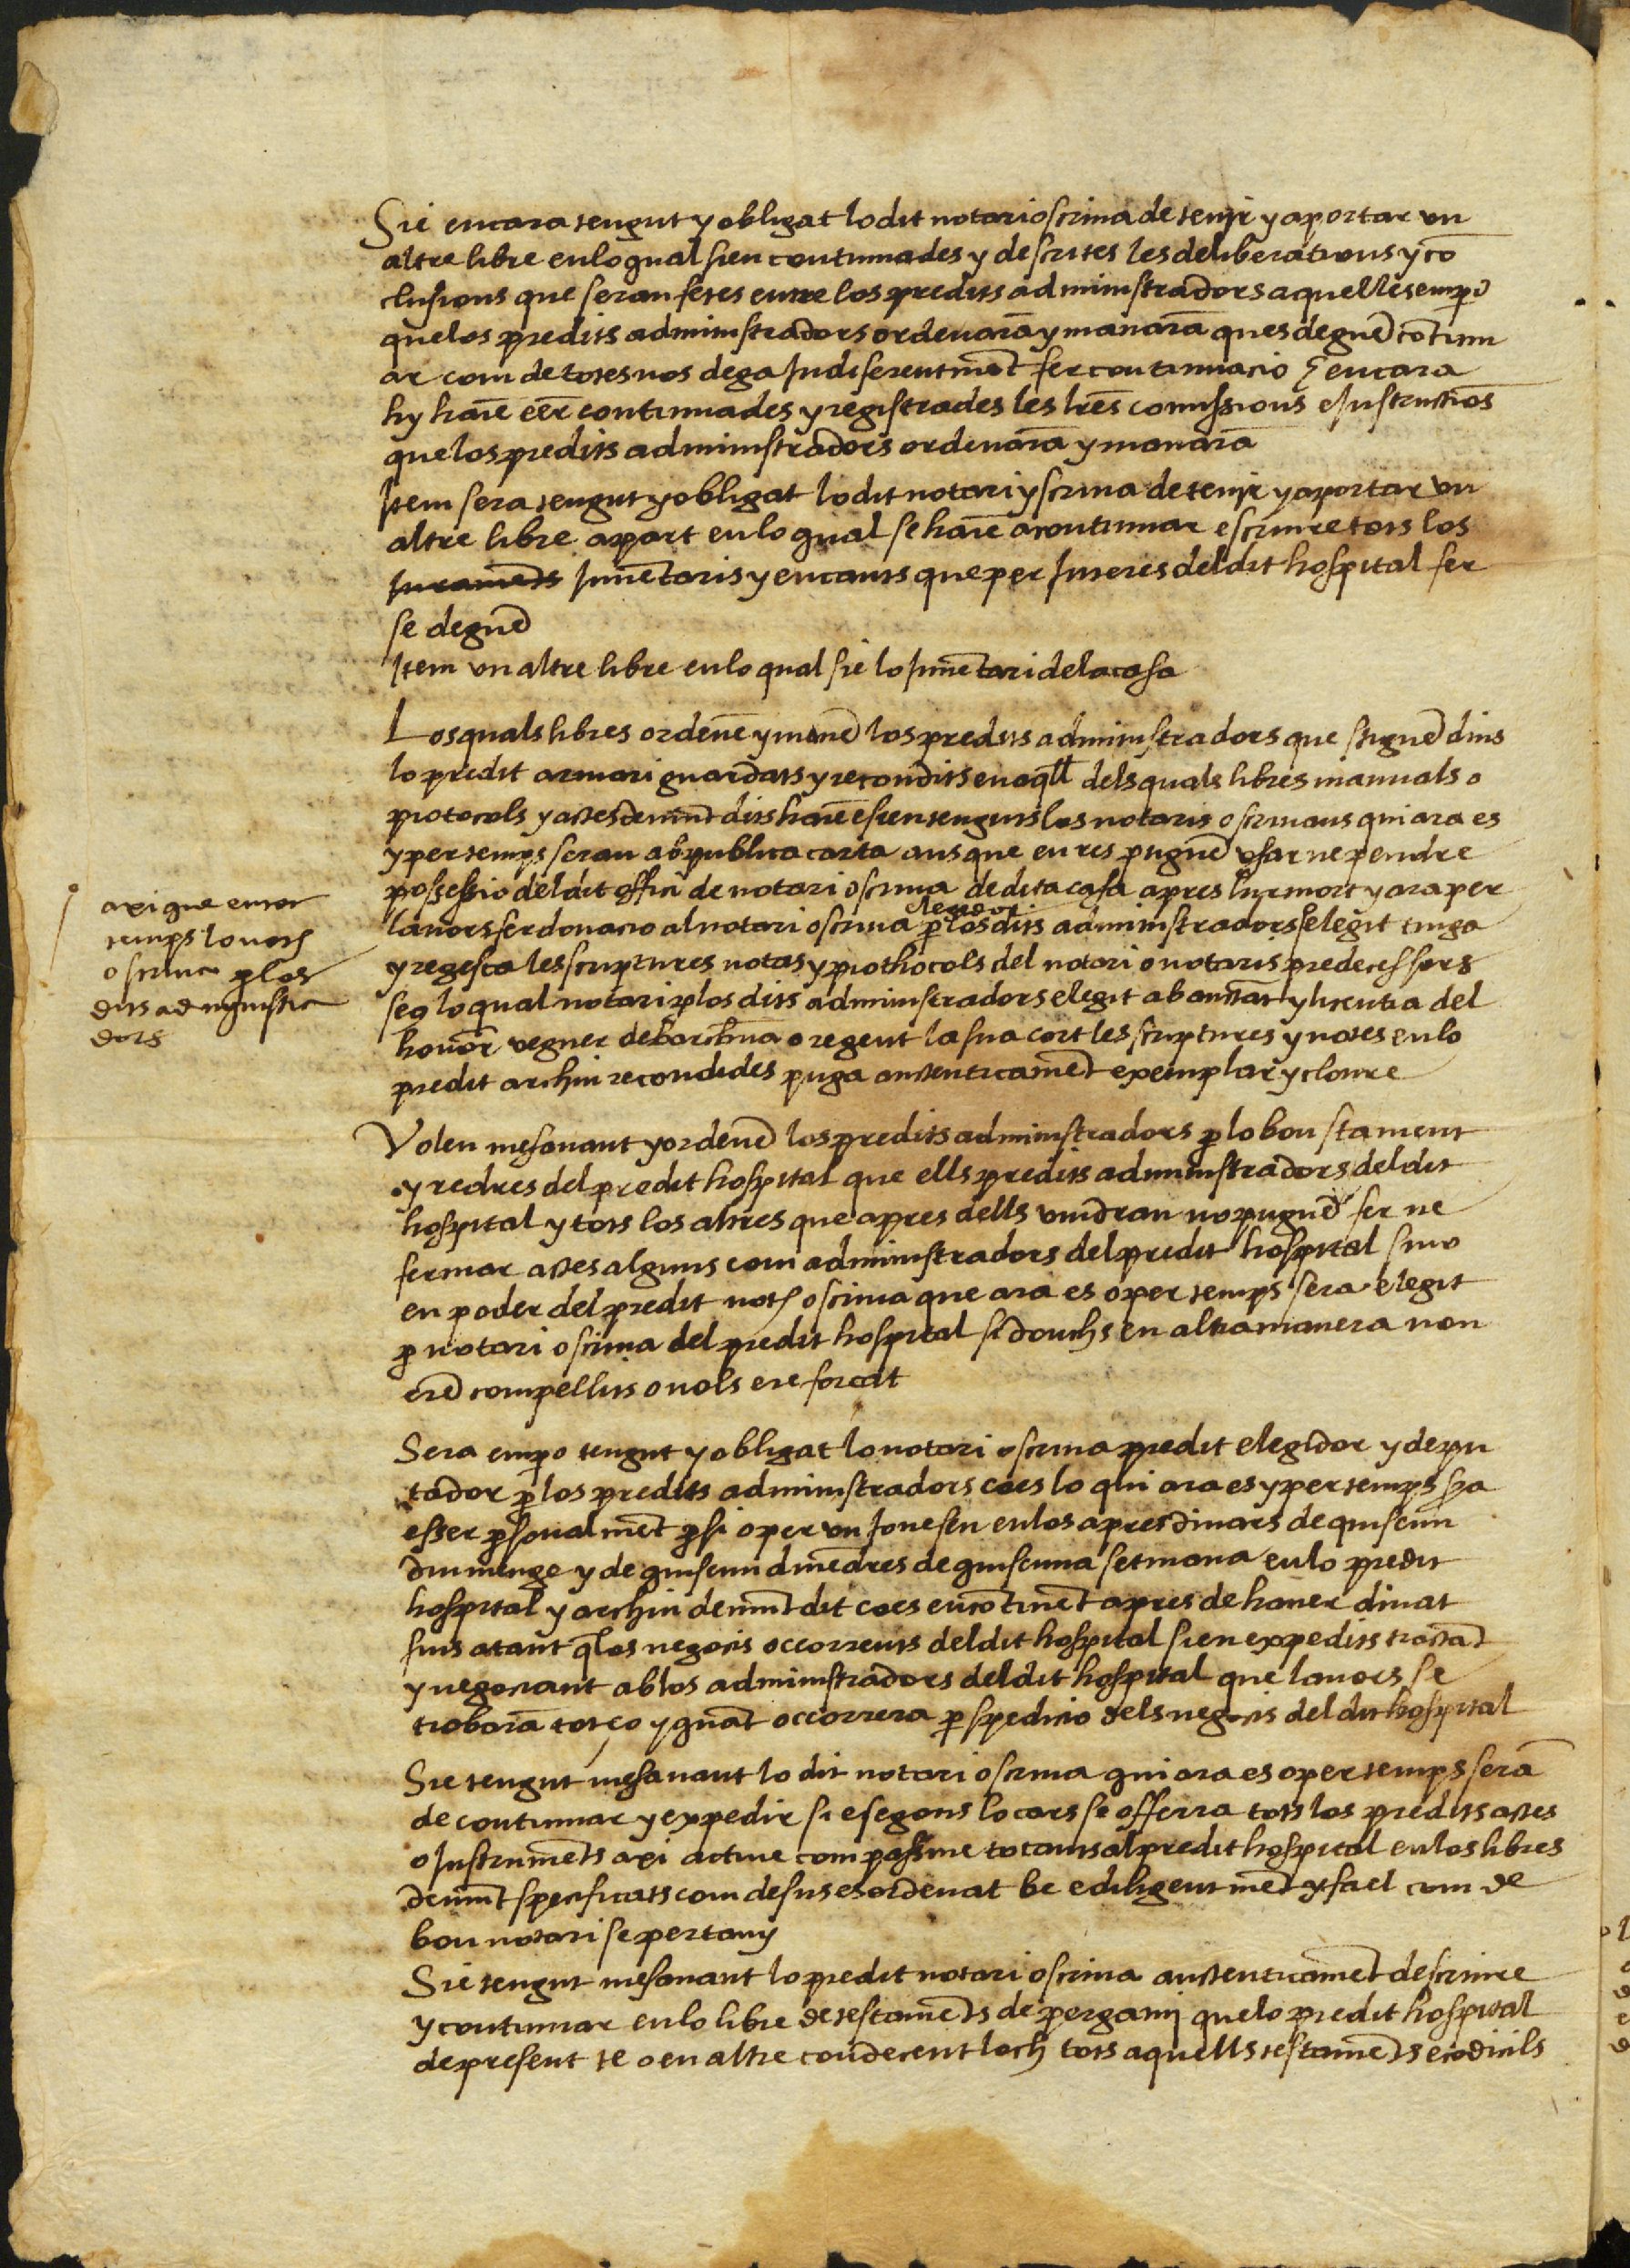 Sie encara tengut y obligat lo dit notari o scriva de tenir y aportar un
altre libre en lo qual sien continuades y descrites les deliberations y cō
clusions que seran fetes entre los predits administradors aquelles emperò
que los predits administradors ordenarā y manarā ques deguē continu
ar com de totes nos dega Indiferentmēt fer continuacio E encara
hy haiē eēr continuades y registrades les lrēs comissions e Instructiōs
que los predits administradors ordenarā y manarā
Item sera tengut y obligat lo dit notari y scriva de tenir y aportar un
altre libre apart en lo qual se haiē a continuar e scriure tots los
Inuentaris y encants que per Interes del dit hospital fer
se deguē
Item un altre libre en lo qual sie lo Inuētari de la casa
Los quals libres ordenē y manē los predits administradors que stiguē dins
lo predit armari guardats y recondits en aq̄ll dels quals libres manuals o
protocols y actes demūt dits haiē e sien tenguts los notaris o scriuans qui ara es
y per temps seran ab publica carta ans que en res puguē usar ne pendre
possessio del dit offici de notari o scriua de dita casa apres lur mort y ara per
lauors fer donacio al notari o scriua elegidor p los dits administradors elegit tinga
y regesca les scriptures notas y prothocols del notari o notaris predecessors
seo lo qual notari p los dits administradors elegit ab auctāt y licentia del
honōr veguer de barchna o regent la sua cort les scriptures y notes en lo
predit archiu recondides puga autenticamēt exemplar y cloure
axi que en tot
temps lo noth
o scriua p los
dits administra
dors
Volen mesauant y ordenē los predits administradors p lo bon stament
y redres del predit hospital que ells predits administradors del dit
hospital y tots los altres que apres dells vindran no puguē fer ne
fermar actes alguns com administradors del predit hospital sino
en poder del predit noth o scriua que ara es o per temps sera elegit
p notari o scriua del predit hospital si donchs en altra manera non
erē compellits o nols ere forcat
Sera empo tengut y obligat lo notari o scriua predit elegidor y depu
tador p los predits administradors coes lo qui ara es y per temps sra
esser psonalmēt p si o per un Joue seu en los apres dinars de quiscun
diumenge y de quiscun diuēdres de quiscuna setmana en lo predit
hospital y archiu demūt dit coes encōtinēt apres de hauer dinat
fins atant q̄ los negocis occorrents del dit hospital sien expedits tractāt
y negociant ab los administradors del dit hospital que lauors se
trobarā tot ço y quāt occorrera p spedicio dels negocis del dit hospital
Sie tengut mesauant lo dit notari o scriua qui ara es o per temps serā
de continuar y expedir si e segons lo cars se offerra tots los predits actes
o Instrumēts axi actiue com passiue tocants al predit hospital en los libres
demūt specificats com desus es ordenat be e diligentmēt y fael com de
bon notari se pertany
Sie tengut mesauant lo predit notari o scriua autenticamēt descriure
y continuar en lo libre de testamēts de pergamj que lo predit hospital
de present te o en altre condecent loch tots aquells testamēts e codicils